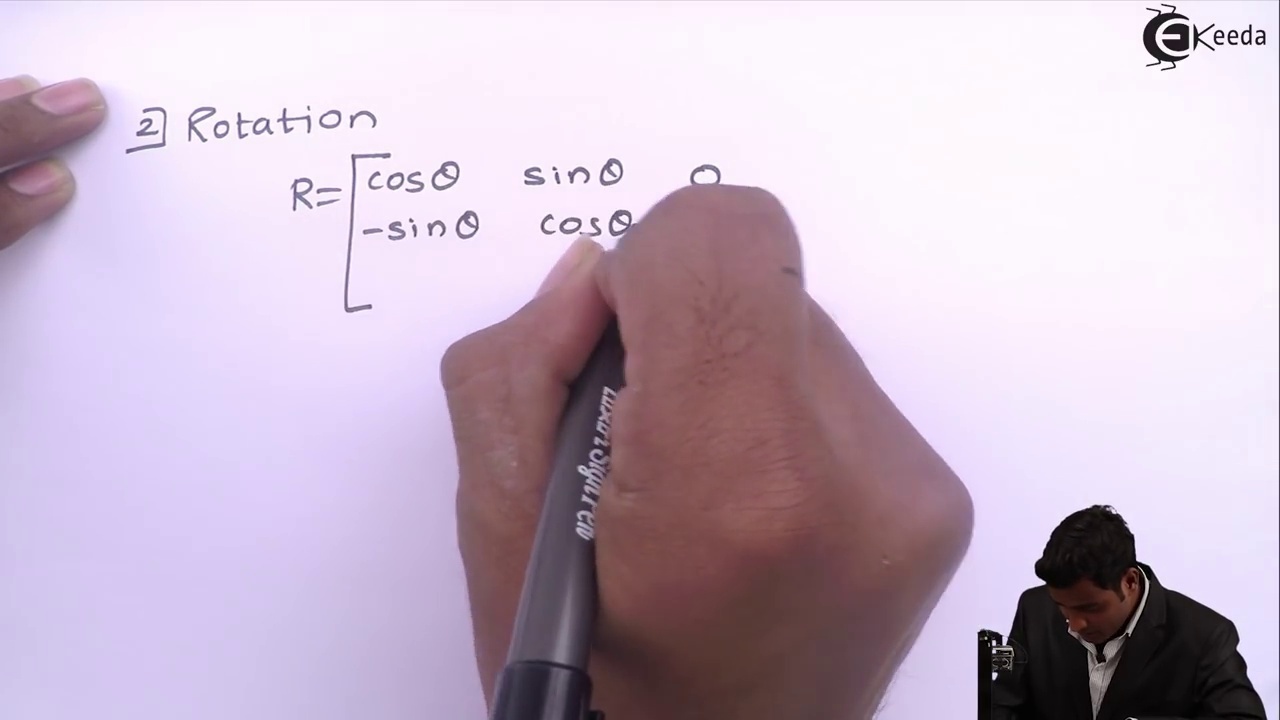 EKeeda
2] Rotation
R= [cosθ sinθ 0
-sinθ cosθ
Luxor Sign Pen